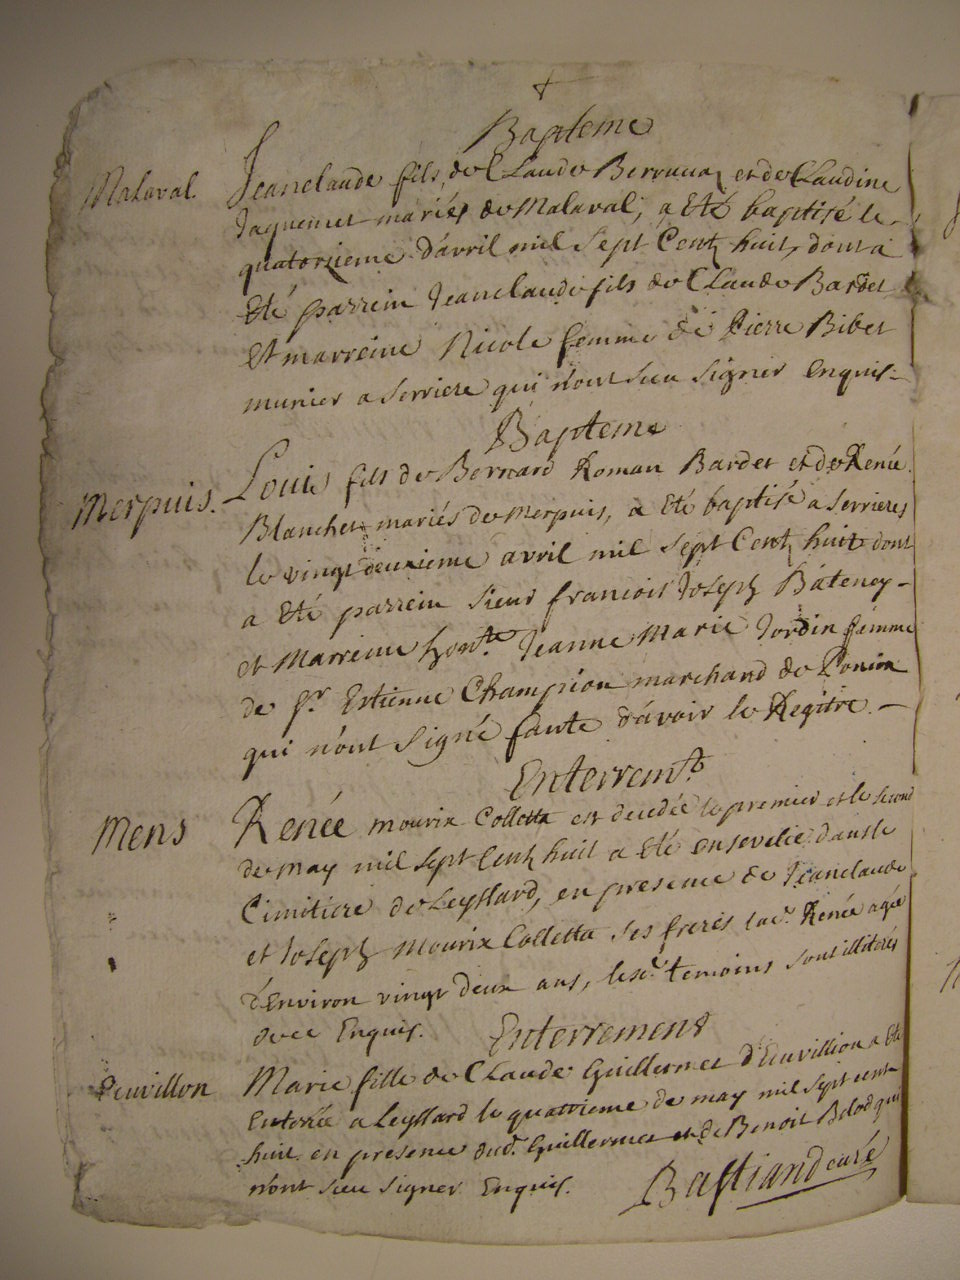 Bapteme
Malaval. Jeanclaude fils de Claude Berruaz et de Claudine
Jaquemet mariés de Malaval, a eté baptisé le
quatorzieme d'avril mil sept Centz huit, dont a
eté parrein Jeanclaude fils de Claude Bardet
et marreine Nicole femme de Pierre Bibet
munier a Serriere qui n'ont sceu signer Enquis.
Bapteme
Merpuis. Louis fils de Bernard Roman Bardet et de Renée
Blanchet mariés de Merpuis, a eté baptisé a Serrieres
le vingt deuxieme avril mil sept Centz huit dont
a eté parrein sieur francois Joseph Bateney
et Marreine honte. Jeanne Marie Jordin femme
de sr. Estienne Champion marchand de Poncin
qui n'ont signé faute d'avoir le Regitre.
Enterremt.
Mens Renée Mourix Colletta est decedée le premier et le second
de may mil sept Centz huit a eté ensevelie dans le
Cimitiere de Leyssard, en presence de Jeanclaude
et Joseph Mourix Colletta ses freres lad. Renée agée
d'Environ vingt deux ans, lesd. temoins sont illiterés
avec Enquis.
Enterrement
Leuvillon Marie fille de Claude Guillermet d'Euvillion a eté
Enterrée a Leyssard le quatrieme de may mil sept cents
huit en presence dud. Guillermet et de Benoit Belod qui
n'ont sceu signer Enquis.
Bastiand curé